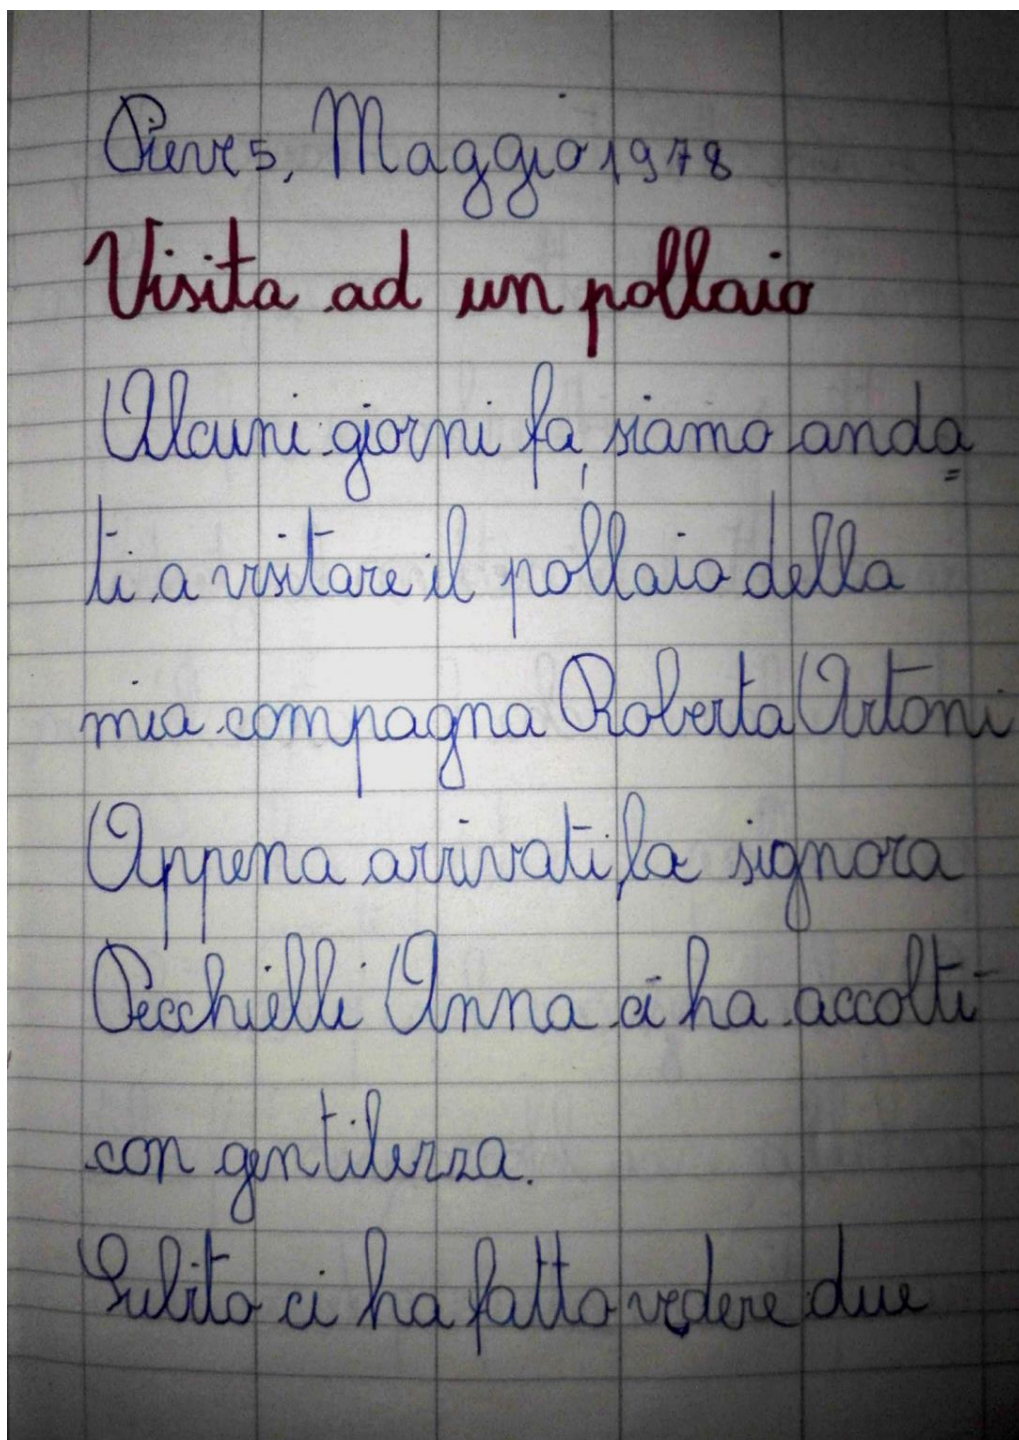 Pieve 5, Maggio 1978
Visita ad un pollaio
Alcuni giorni fa, siamo anda=
ti a visitare il pollaio della
mia compagna Roberta Artoni
Appena arrivati, la signora
Pecchielli Anna ci ha accolti
con gentilezza.
Subito ci ha fatto vedere due